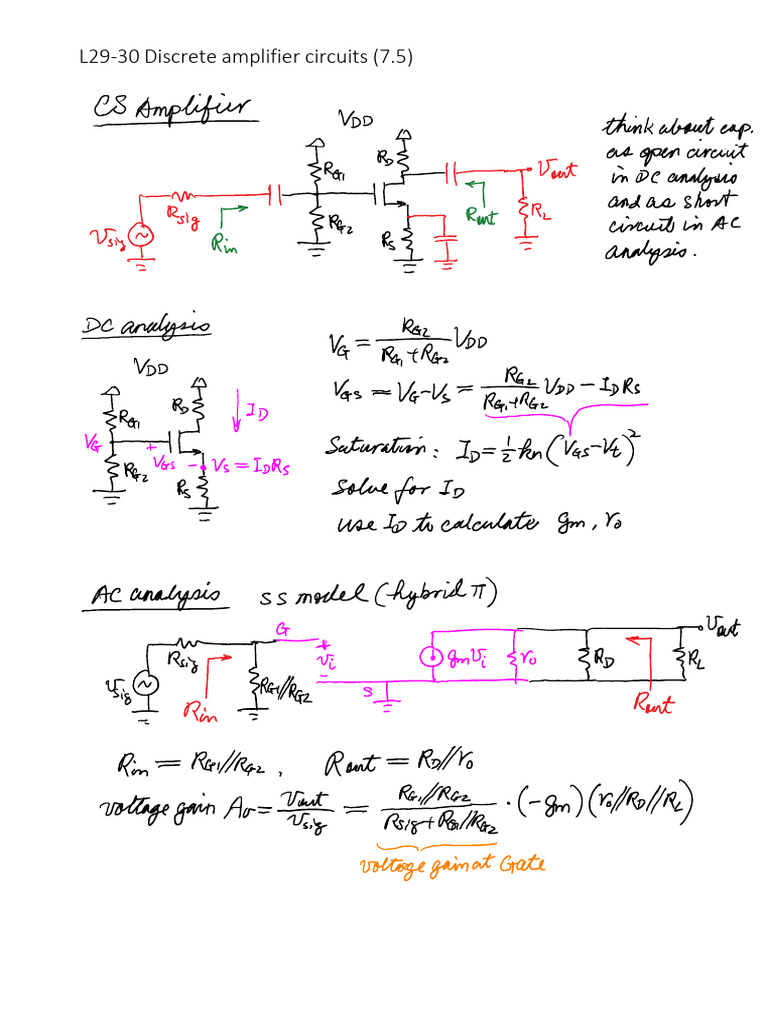 L29-30 Discrete amplifier circuits (7.5)
CS Amplifier
VDD
RG1
RD
Vout
Rsig
Rin
RG2
Rout
RL
Vsig
RS
think about cap.
as open circuit
in DC analysis
and as short
circuit in AC
analysis.
DC analysis
VDD
RG1
RD
ID
VG
+
VGS
-
VS = IDRS
RG2
RS
VG = RG2 / (RG1 + RG2) VDD
VGS = VG - VS = RG2 / (RG1 + RG2) VDD - IDRS
Saturation: ID = 1/2 kn (VGS - Vt)²
solve for ID
use ID to calculate gm, ro
AC analysis ss model (hybrid π)
G
Rsig
+
vi
-
gmvi
ro
RD
RL
Vout
vsig
Rin
RG1//RG2
S
Rout
Rin = RG1//RG2, Rout = RD//ro
voltage gain Av = vout / vsig = RG1//RG2 / (Rsig + RG1//RG2) · (-gm)(ro//RD//RL)
voltage gain at Gate